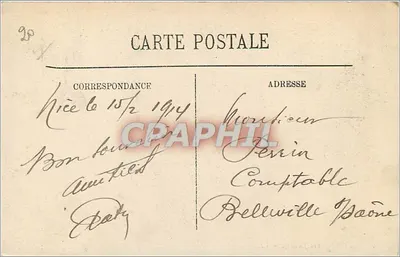 20
CARTE POSTALE
CORRESPONDANCE
Nice le 15/2 1914
Bon souvenir
Amitiés
ADRESSE
Monsieur
Perrin
Comptable
Belleville s/Saône
CPAPHIL.COM